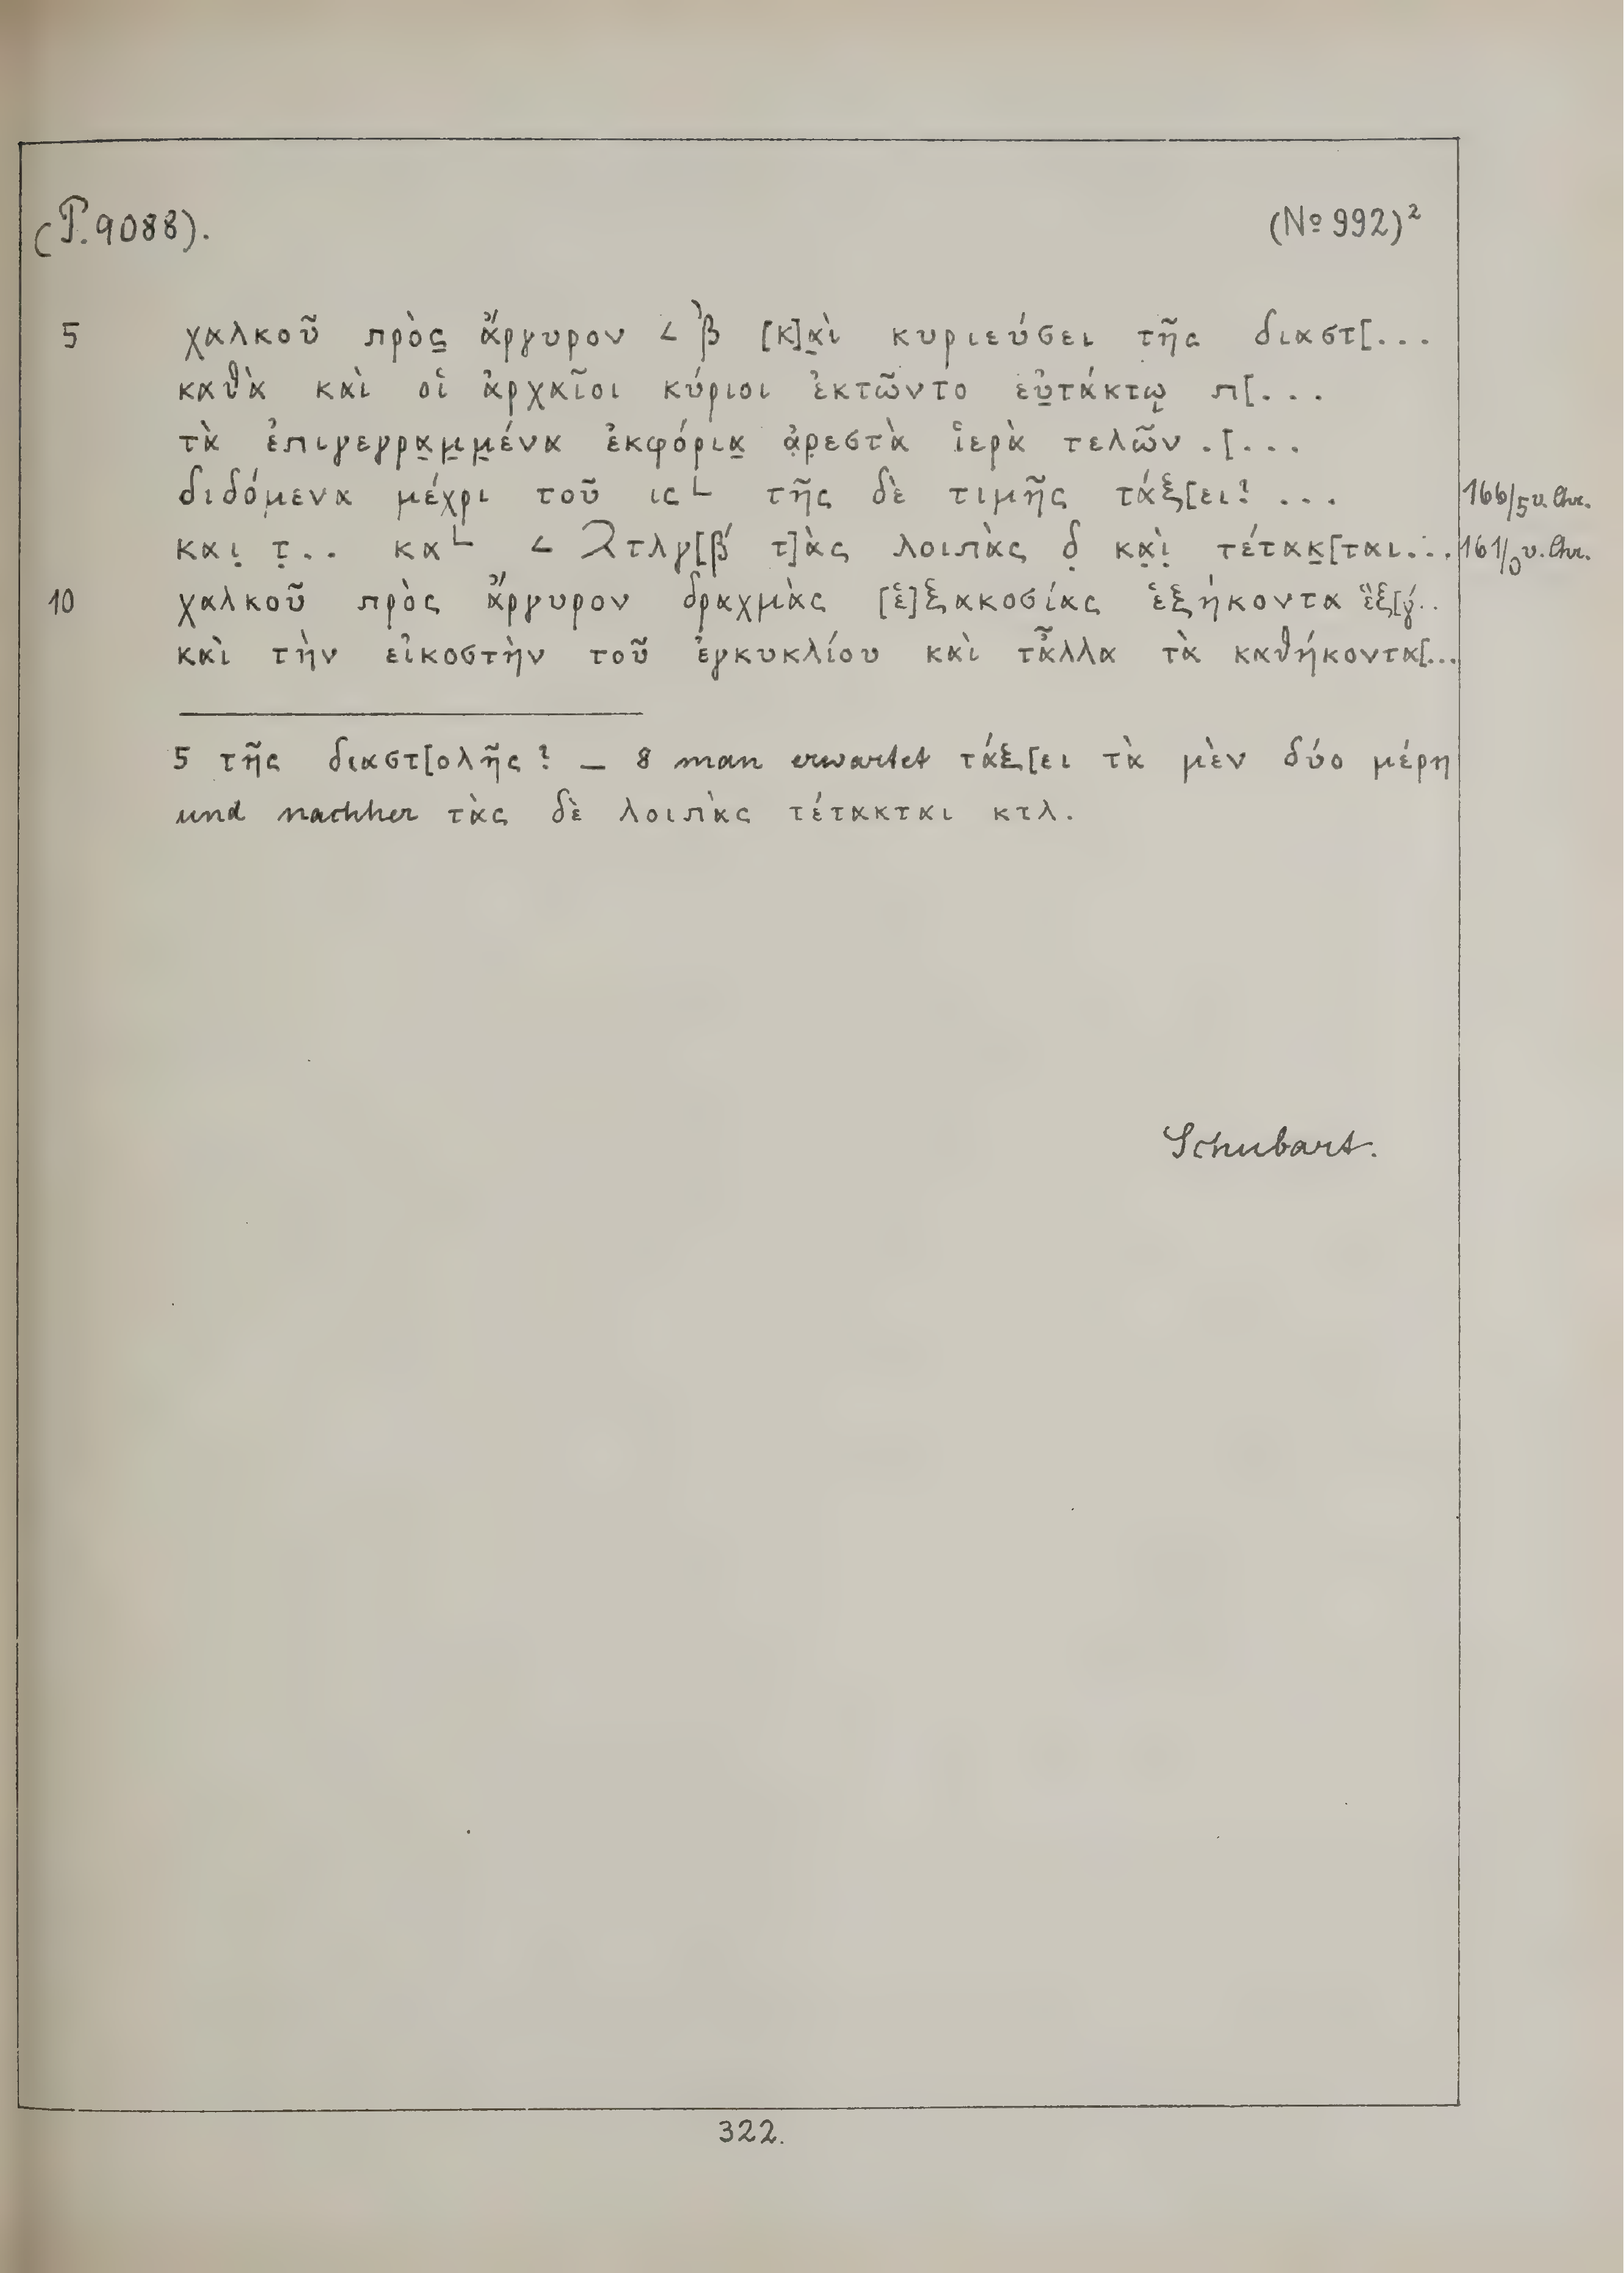 (P. 9088). (Nº 992)²
5 χαλκοῦ πρὸς̣ ἄργυρον ∠ ͵β [κ]α̣ὶ κυριεύσει τῆς διαστ[...
καθὰ καὶ οἱ ἀρχαῖοι κύριοι ἐκτῶντο εὐ̣τάκτῳ π[...
τὰ ἐπιγεγρα̣μ̣μ̣ένα ἐκφόρια̣ ἀ̣ρ̣εστὰ ἱερὰ τελῶν .[...
διδόμενα μέχρι τοῦ ις└ τῆς δὲ τιμῆς τάξ[ει? ... 166/5 v. Chr.
και̣ τ̣.. κα└ ∠ ϡτλγ[β́ τ]ὰς λοιπὰς δ̣ κα̣ὶ̣ τέτακ̣[ται... 161/0 v. Chr.
10 χαλκοῦ πρὸς ἄργυρον δραχμὰς [ἑ]ξακοσίας ἑξήκοντα ἓξ[γ́..
καὶ τὴν εἰκοστὴν τοῦ ἐγκυκλίου καὶ τἆλλα τὰ καθήκοντα[...
5 τῆς διαστ[ολῆς? — 8 man erwartet τάξ[ει τὰ μὲν δύο μέρη
und nachher τὰς δὲ λοιπὰς τέτακται κτλ.
Schubart.
322.